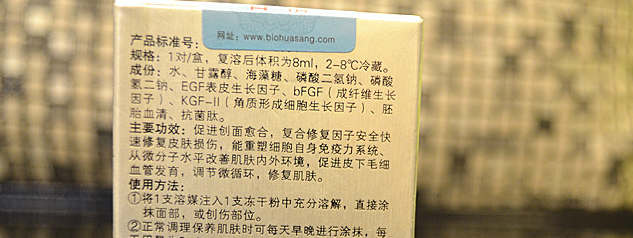 网址：www.biohuasang.com
产品标准号：
规格：1对/盒，复溶后体积为8ml，2-8℃冷藏。
成份：水、甘露醇、海藻糖、磷酸二氢钠、磷酸
氢二钠、EGF表皮生长因子、bFGF（成纤维生长
因子）、KGF-II（角质形成细胞生长因子）、胚
胎血清、抗菌肽。
主要功效：促进创面愈合，复合修复因子安全快
速修复皮肤损伤，能重塑细胞自身免疫力系统、
从微分子水平改善肌肤内外环境，促进皮下毛细
血管发育，调节微循环，修复肌肤。
使用方法：
①将1支溶媒注入1支冻干粉中充分溶解，直接涂
抹面部，或创伤部位。
②正常调理保养肌肤时可每天早晚进行涂抹，每